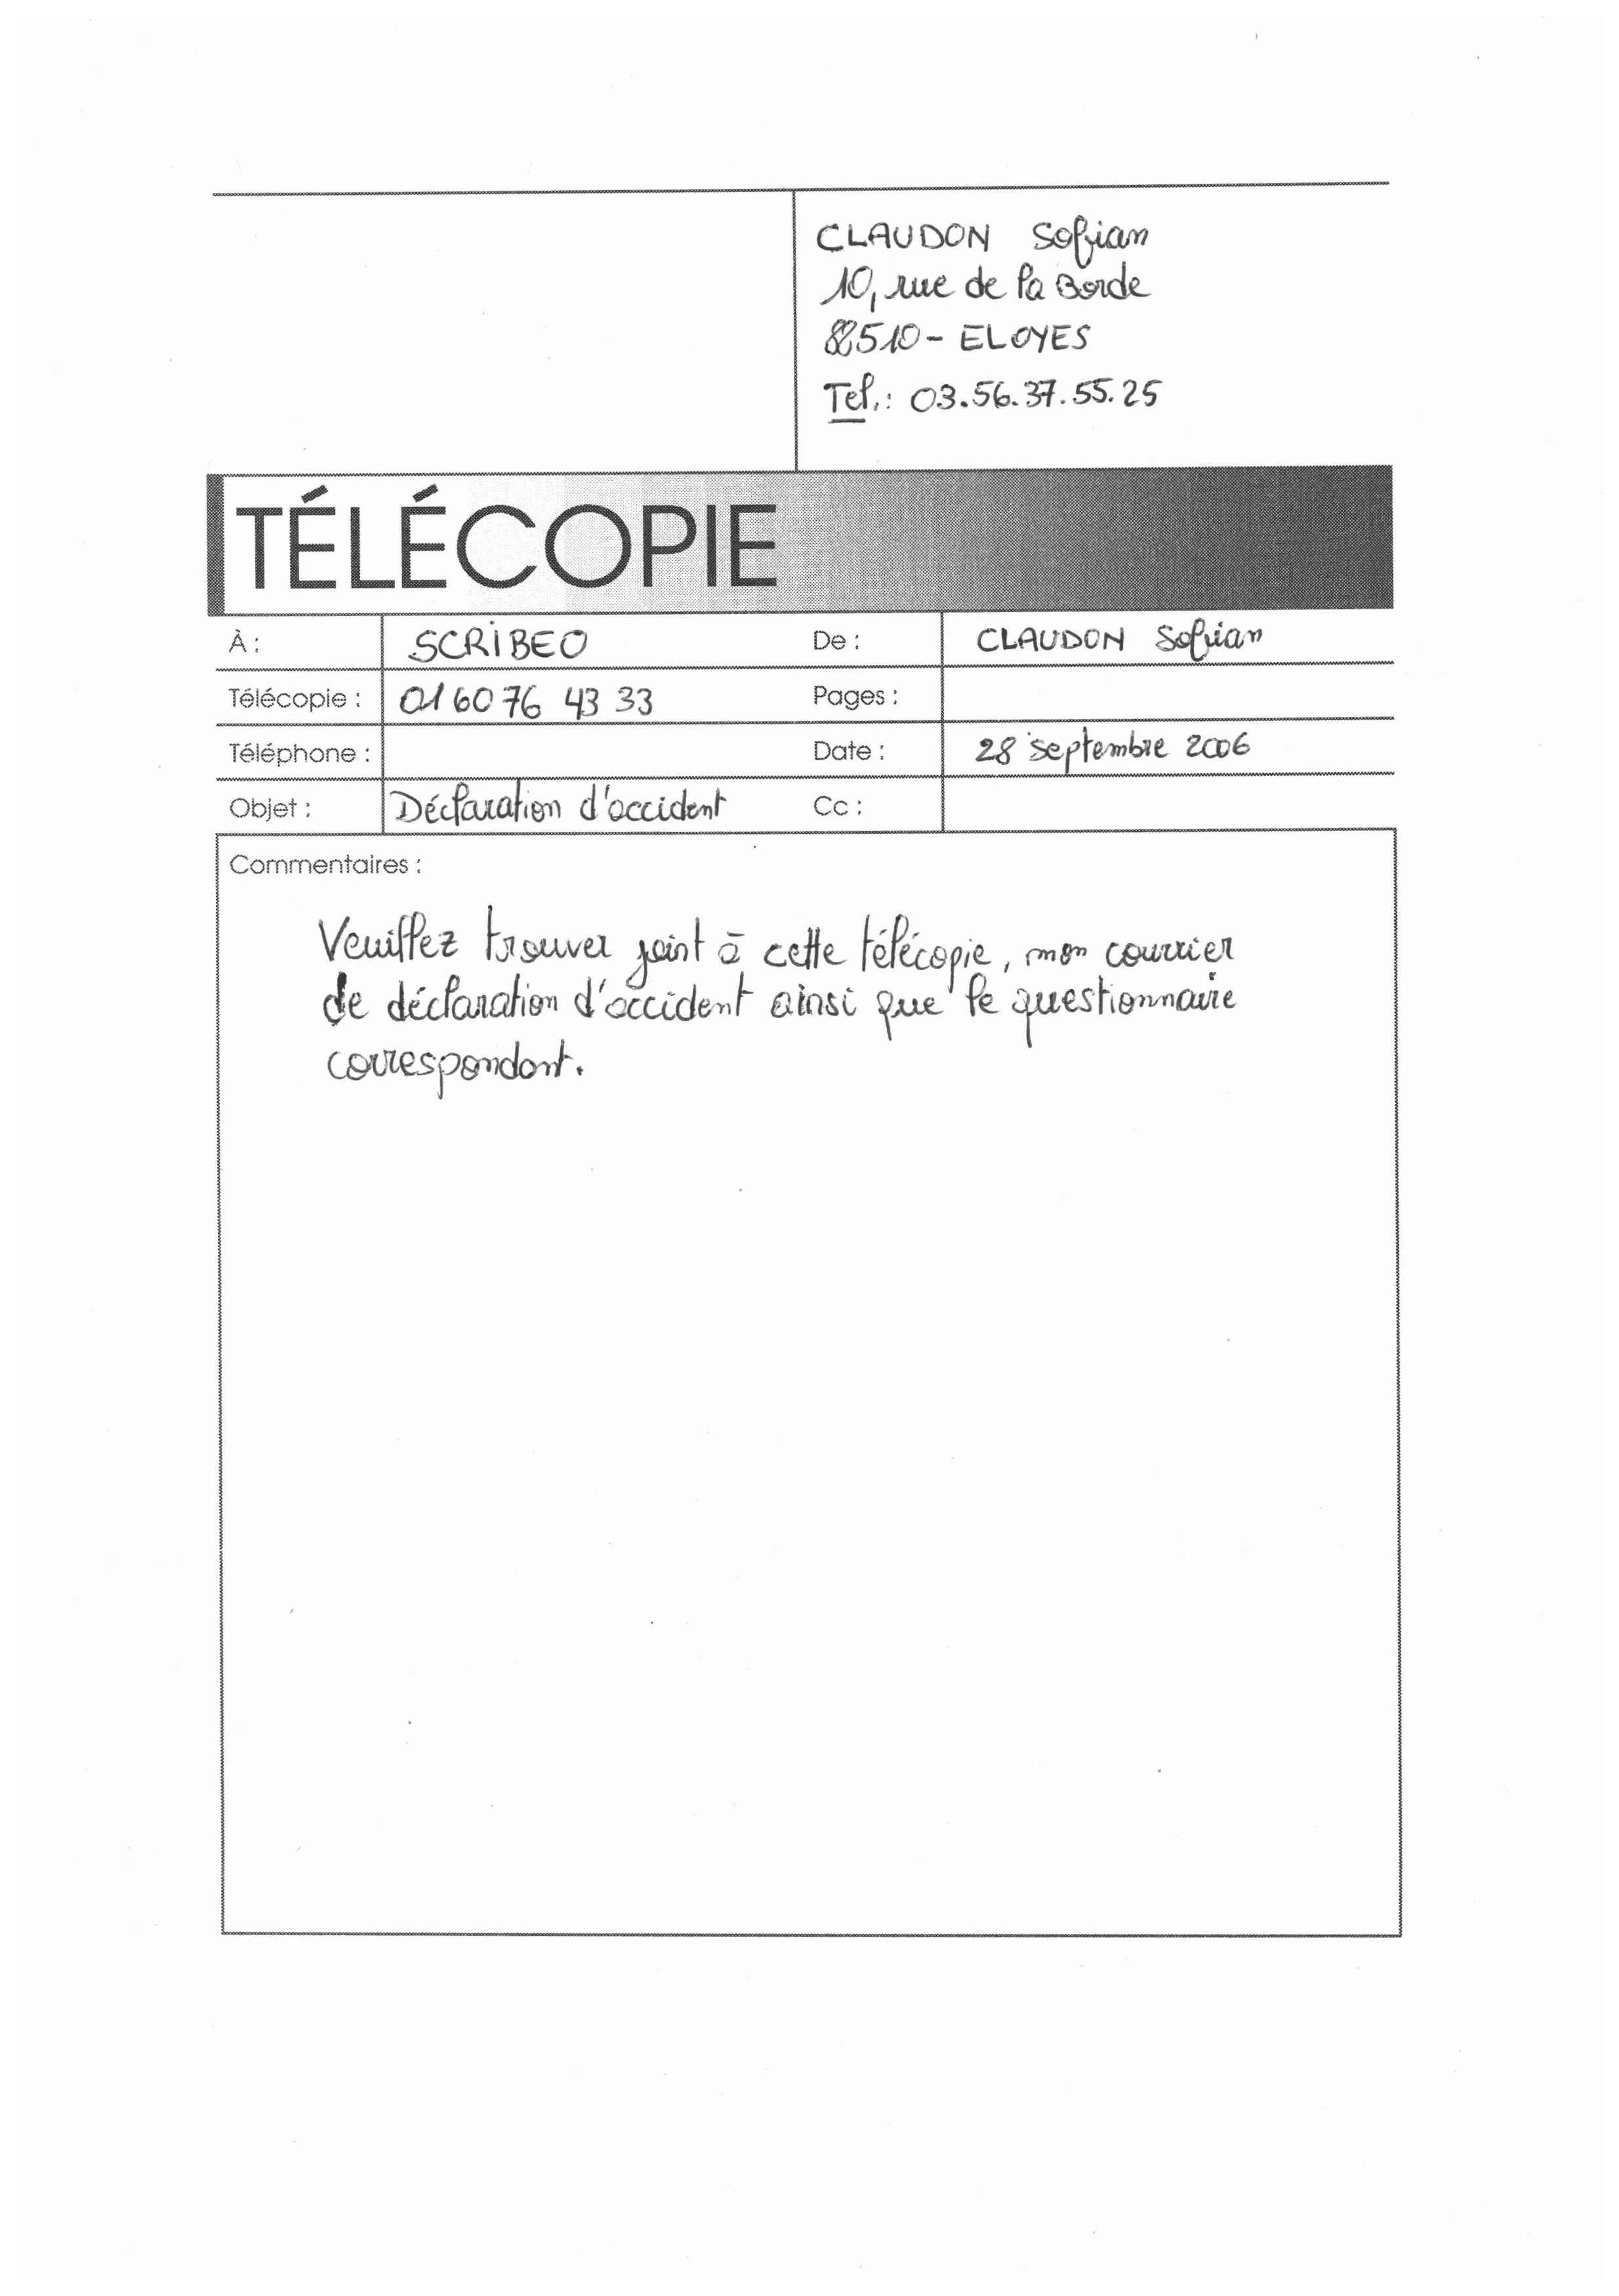 CLAUDON Sofian
10, rue de la Borde
88510 - ELOYES
Tel.: 03.56.37.55.25
TÉLÉCOPIE
À : SCRIBEO De : CLAUDON Sofian
Télécopie : 01 60 76 43 33 Pages :
Téléphone : Date : 28 septembre 2006
Objet : Déclaration d'accident Cc :
Commentaires :
Veuillez trouver joint à cette télécopie, mon courrier
de déclaration d'accident ainsi que le questionnaire
correspondant.